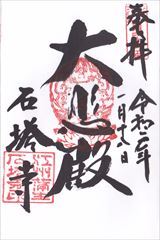 奉拝
令和二年
一月十八日
大悲殿
石塔寺